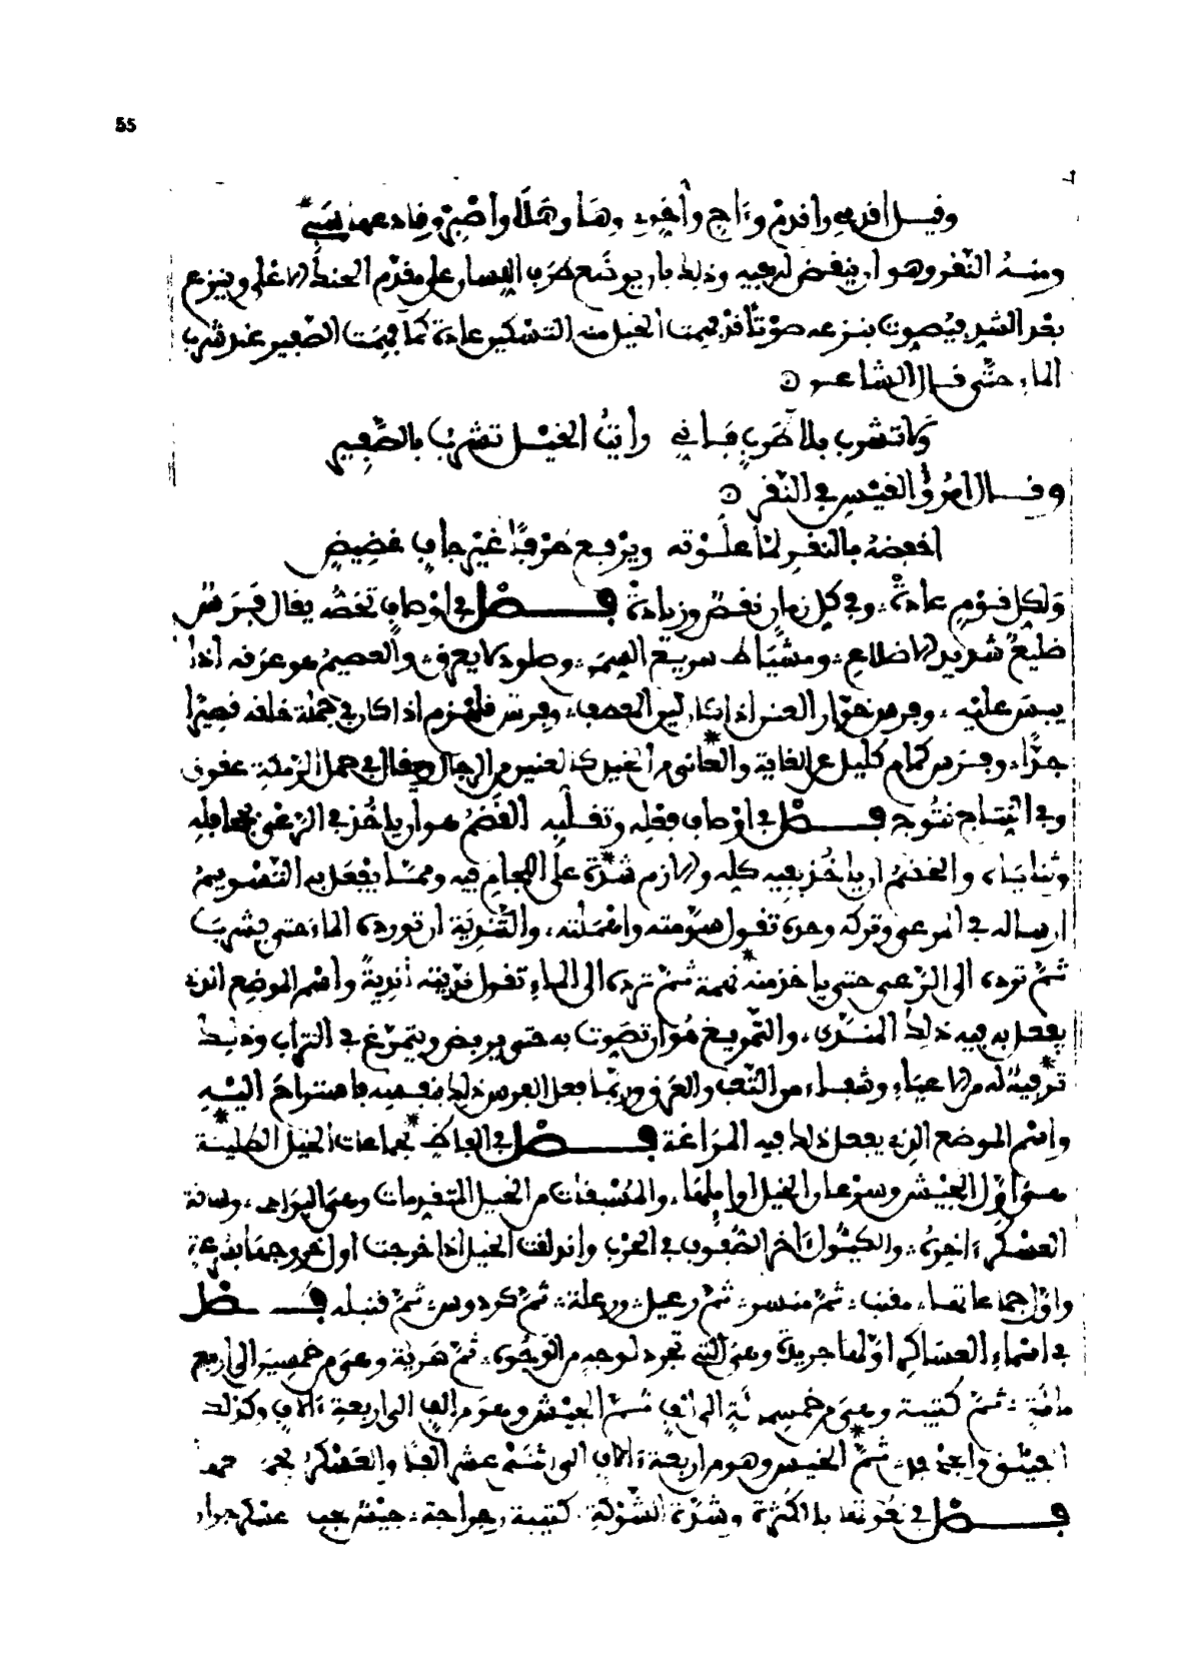 55
وقيل اقدمي واقدم وءاج وأخّر، وهَبا وهَلَا وأصْبِر وقاد عهدا
ومنه النَّقْر وهو أن ينقض لهيبه وذلك بأن يوضع طرف اللسان على مقدّم الحنك الأعلى وينزع
بعد الشد فيُصوت بنزعه صوْتًا قد فهمت الخيل منه التسكين عادة كما فهمت الصّفير عند شرب
الماء حتّى قال الشاعر
وَلا تشرب بلا طرب فإني رأيتُ الخيْل تشرب بالصّفير
وقال امرؤ القيس في النّقر
اخفضه بالنقر لمّا علوْته ويرْفع طرْفًا غيْر جافٍ غضيضِ
ولكل قوْم عادة، وفي كل زمان نقصٌ وزيادة فصْل في أوْصاف تخصّه يقال فرس
ضليعٌ شديد الأضلاع، ومشْيَاط سريع السمن، وصلود لا يعرق، والعصيم هو عرقه إذا
يبس عليْه، وفرس خوّار العنان إذا كان ليّن العطف، وفرس إذا كان في جملة خلقه قصيرا
جدّا، وفرس كهام كليل عن الغاية والعانى من الخيل كالعنين من الرجال ويقال في حمل الرّمكة عقوق
وفي النِتاج نتُوج فصْل في أوْصاف فعله وتقلّبه القضْم هو أن يأخذ في الرّعي بجحافله
وثناياه، والخضْم أن يأخذ بفيه كله والازم شدّة على اللجام فيه وممّا يفعل به التّسْويم
إرساله في المرعى وتركه وحده تقول سوّمته وأهْملته، والتّنْدِيَة أن تورده الماء حتى يشرب
ثمّ ترده الى الرّعى حتى يأخذ منه نهمة ثمّ ترده الى الماء تقول ندّيته تنْدِيَةً واسْم الموضع الذي
يفعل به فيه ذلك المندّى، والتّمريغ هُوَ أن تصوّت به حتى يربض ويتمرّغ في التراب وذلك
ترفيهٌ له من الاعياء وشفاء من التعب والعرق وربّما فعل الفرس ذلك بنفسه فاستراحَ اليْه
واسْم الموضع الذي يفعل ذلك فيه المرَاغة فصْل في ألفاظ جماعات الخيل الطليعَة
هي أوّل الجيْش وسرْعان الخيل اوائلها، والمُسْنفات من الخيل المتقدمات وهي البوادى، وساقة
العسْكر ءاخره، والكيّول ءاخر الصّفوف في الحرْب واندلقت الخيل إذا خرجت أول خروجها بدفعة
واوّل جماعاتها، مقنب، ثمّ منسر، ثمّ رعيل، ورعلة، ثمّ كردوس، ثمّ قنبله فصْل
في اسْماء العساكر اوّلها جريدة وهي التي تجرد لوجهٍ من الوجُوه، ثمّ سَريّة وهي من خمسين الى اربع
مائة، ثمّ كتيبة وهي من خمسمائة الى ألف ثمّ الجيْش وهو من ألف الى اربعة ءالاف وكذلك
الجيْش واجحفل، ثمّ الخميس وهو من اربعة ءالاف الى اثنى عشر ألفًا والعَسْكر يجمعها
فصْل في نعُوتها بالكثرة وشدّة الشّوْكة. كتيبة رجراجة، جيْش لجب عسكر جرار